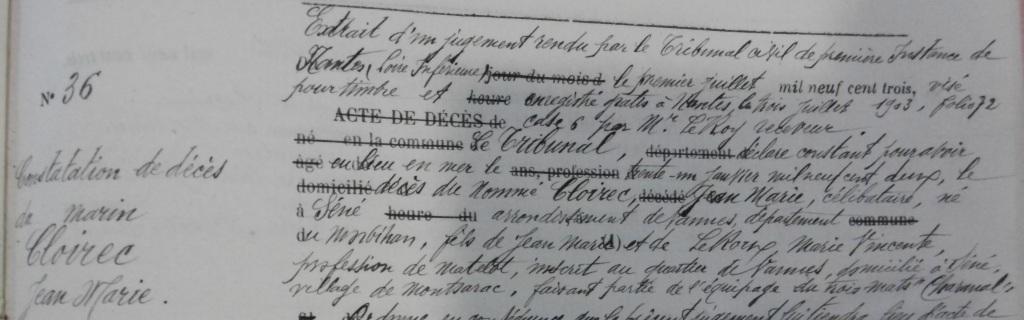 Extrait d'un jugement rendu par le Tribunal civil de première Instance de
Nantes (Loire Inférieure) jour du mois d le premier juillet mil neuf cent trois, visé
Nº 36
pour timbre et heure enregistré gratis à Nantes, le trois juillet 1903, folio 72
ACTE DE DÉCÈS de case 6 par Mr Le Roy receveur.
né en la commune Le Tribunal, département déclare constant pour avoir
âgé eu lieu en mer le ans, profession trente-un janvier mil neuf cent deux, le
domicilié décès du nommé Cloirec, décédé Jean Marie, célibataire, né
à Séné heure du arrondissement de Vannes, département commune
du Morbihan, fils de Jean Marie et de Le Roux, Marie Vincente,
profession de matelot, inscrit au quartier de Vannes, domicilié à Séné,
village de Montsarac, faisant partie de l'équipage du trois mats "Charmal"
en conséquence que le présent jugement tiendra lieu d'acte de
Constatation de décès
du marin
Cloirec
Jean Marie.